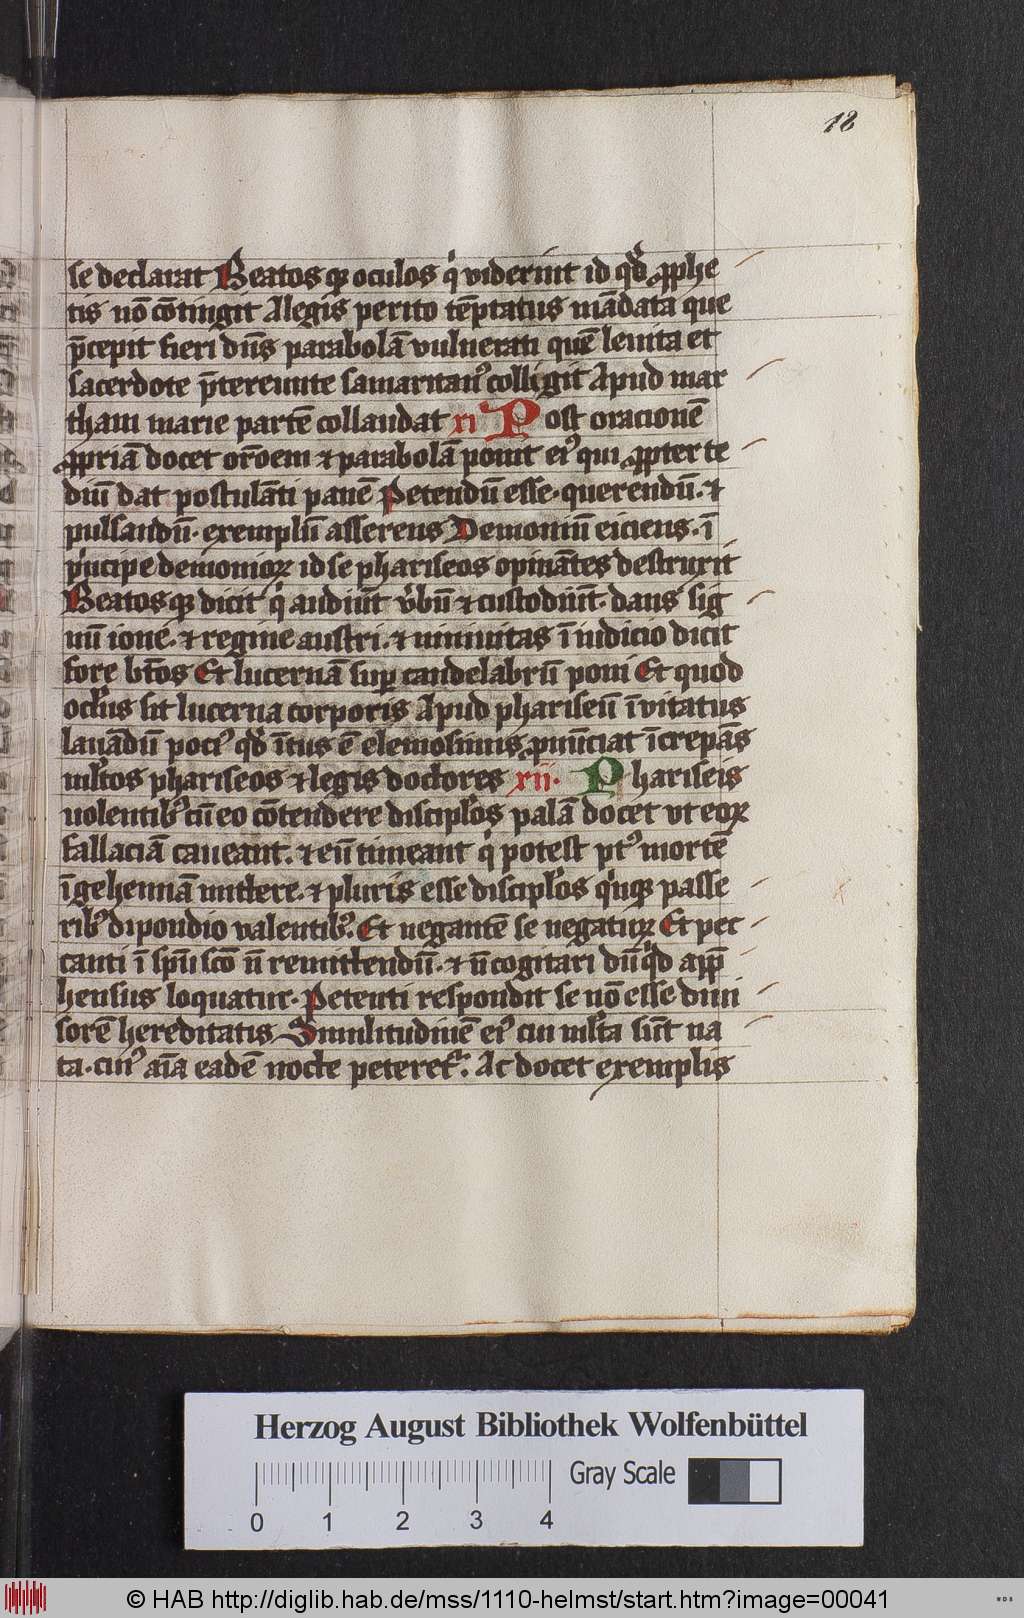 18
se declarat Beatos qꝫ oculos qͥ viderīt id qd̓ ꝓphe
tis nō cōtingit A legis perito tēptatus mādata que
p̄cepit fieri dūs parabolā vulnerati quē leuita et
sacerdote p̄tereunte samaritanꝰ colligit Apud mar
tham marie partē collaudat xi Post oracionē
ꝓpriā docet or̄oem ⁊ parabolā ponit eiꝰ qui ꝓpter te
diū dat postulāti panē Petendū esse · querendū · ⁊
pulsandū · exemplū asserens Demoniū eiciens · ī
pͥncipe demonioꝝ id se phariseos opināteſ destruxit
Beatos qꝫ dicit qͥ audiūt v̓bū ⁊ custodiūt · dans sig
nū ione · ⁊ regine austri · ⁊ niniuitas ī iudicio dicit
fore bt̄os Et lucernā suꝑ candelabrū poni Et quod
oclūs sit lucerna corporis Apud phariseū īvitatus
lauādū pociꝰ qd̓ ītus ē elemosinis ꝓnūciat īcrepās
ml̄tos phariseos ⁊ legis doctores xii · Phariseis
uolentibꝰ cū eo cōtendere discipl̄os palā docet vt eoꝝ
fallaciā caueant · ⁊ eū timeant qͥ potest ptꝰ mortē
ī gehennā mittere · ⁊ pluris esse discipl̄os qͥnqꝫ passe
ribꝰ dipondio valentibꝰ · Et negantē se negatuꝝ Et pec
canti ī sp̄m sc̄o n̄ remittendū · ⁊ n̄ cogitari dū qͥd app̄
hensus loquatur · Petenti respondit se nō esse diui
sorē hereditatis Similitudinē eiꝰ cui ml̄ta sūt na
ta · cuiꝰ aīa eadē nocte peteretᷣ · Ac docet exemplis
Herzog August Bibliothek Wolfenbüttel
Gray Scale
0 1 2 3 4
© HAB http://diglib.hab.de/mss/1110-helmst/start.htm?image=00041